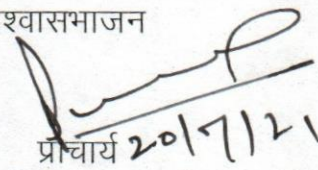 श्वासभाजन
प्राचार्य 20/7/21